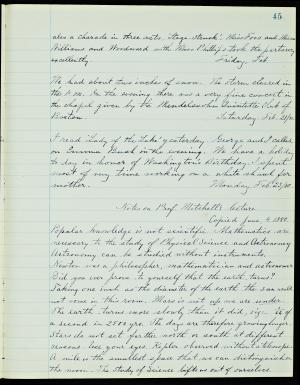 45
also a charade in three acts, "Stage Struck". Misses Foos and
Williams and Woodward with Miss Phillips took the parts very
excellently. Friday, Feb.
We had about two inches of snow. The storm cleared in
the P.M. In the evening there was a very fine concert in
the chapel given by the Mendelssohn Quintette Club of
Boston. Saturday Feb. 21/80
I read "Lady of the Lake" yesterday. George and I called
on Emma Bush in the evening. We have a holiday
to day in honor of Washington's Birthday. I spent
most of my time working on a white shawl for
mother. Monday Feb. 23/80.
Notes on Prof. Mitchell's lecture.
Copied June, 4 1880.
Popular knowledge is not scientific. Mathematics are
necessary to the study of Physical Science and Astronomy
Astronomy can be studied without instruments.
Newton was a philosopher, mathematician and astronomer
Did you ever prove to yourself that the earth turns?
Taking one inch as the diameter of the earth the sun will
not come in this room. Mars is not up we are under.
The earth turns more slowly than it did, of
a second in 2500 yrs. The days are therefore growing longer.
Stars do not set for the north or south of different
reasons lose your eyes. Kepler observed without a telescope
A mile is the smallest space that we can distinguish on
the moon. The Study of Science lifts us out of ourselves.